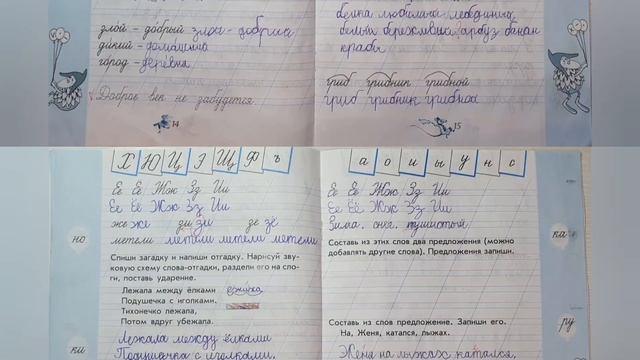 злой – добрый злой – добрый
дикий – домашний
город – деревня
Доброе век не забудется.
14
белка
арбуз банан
гриб грибник грибной
гриб грибник грибной
15
Х Ю Ц Э Щ Ф ъ
Ее Ёё Жж Зз Ии
Ее Ёё Жж Зз Ии
же же зи зи зе зё
метели метели метели метели
Спиши загадку и напиши отгадку. Нарисуй зву-
ковую схему слова-отгадки, раздели его на сло-
ги, поставь ударение.
Лежала между ёлками
Подушечка с иголками.
Тихонечко лежала,
Потом вдруг убежала.
Лежала между ёлками
Подушечка с иголками.
но
ки
а о и ы у н с
Ее Ёё Жж Зз Ии
Ее Ёё Жж Зз Ии
Зима, снег, пушистый
Составь из этих слов два предложения (можно
добавлять другие слова). Предложения запиши.
Составь из слов предложение. Запиши его.
На, Женя, катался, лыжах.
Женя на лыжах катался.
ка
ру